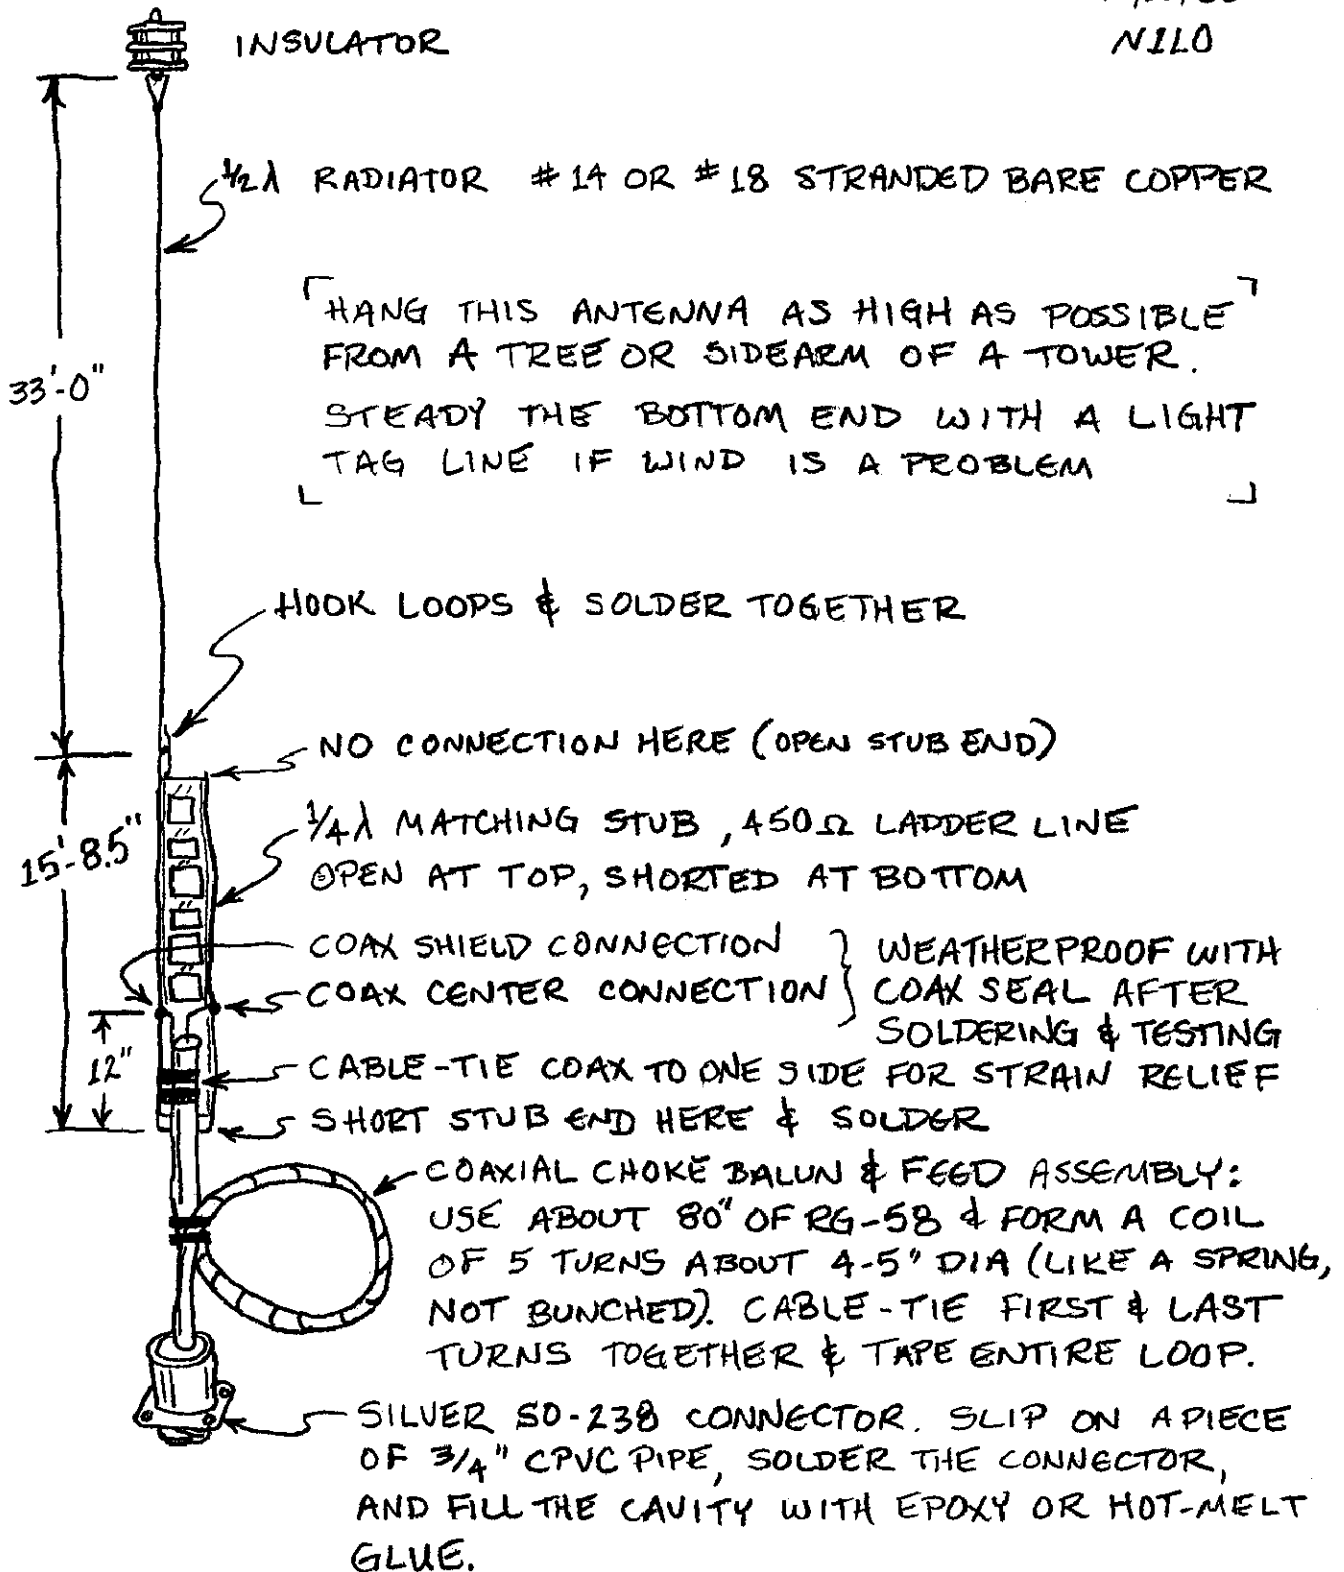 N1LO
INSULATOR
½λ RADIATOR #14 OR #18 STRANDED BARE COPPER
HANG THIS ANTENNA AS HIGH AS POSSIBLE
FROM A TREE OR SIDEARM OF A TOWER.
STEADY THE BOTTOM END WITH A LIGHT
TAG LINE IF WIND IS A PROBLEM
33'-0"
HOOK LOOPS & SOLDER TOGETHER
NO CONNECTION HERE (OPEN STUB END)
¼λ MATCHING STUB, 450Ω LADDER LINE
OPEN AT TOP, SHORTED AT BOTTOM
15'-8.5"
COAX SHIELD CONNECTION
COAX CENTER CONNECTION
WEATHERPROOF WITH
COAX SEAL AFTER
SOLDERING & TESTING
12"
CABLE-TIE COAX TO ONE SIDE FOR STRAIN RELIEF
SHORT STUB END HERE & SOLDER
COAXIAL CHOKE BALUN & FEED ASSEMBLY:
USE ABOUT 80" OF RG-58 & FORM A COIL
OF 5 TURNS ABOUT 4-5" DIA (LIKE A SPRING,
NOT BUNCHED). CABLE-TIE FIRST & LAST
TURNS TOGETHER & TAPE ENTIRE LOOP.
SILVER SO-238 CONNECTOR. SLIP ON A PIECE
OF 3/4" CPVC PIPE, SOLDER THE CONNECTOR,
AND FILL THE CAVITY WITH EPOXY OR HOT-MELT
GLUE.